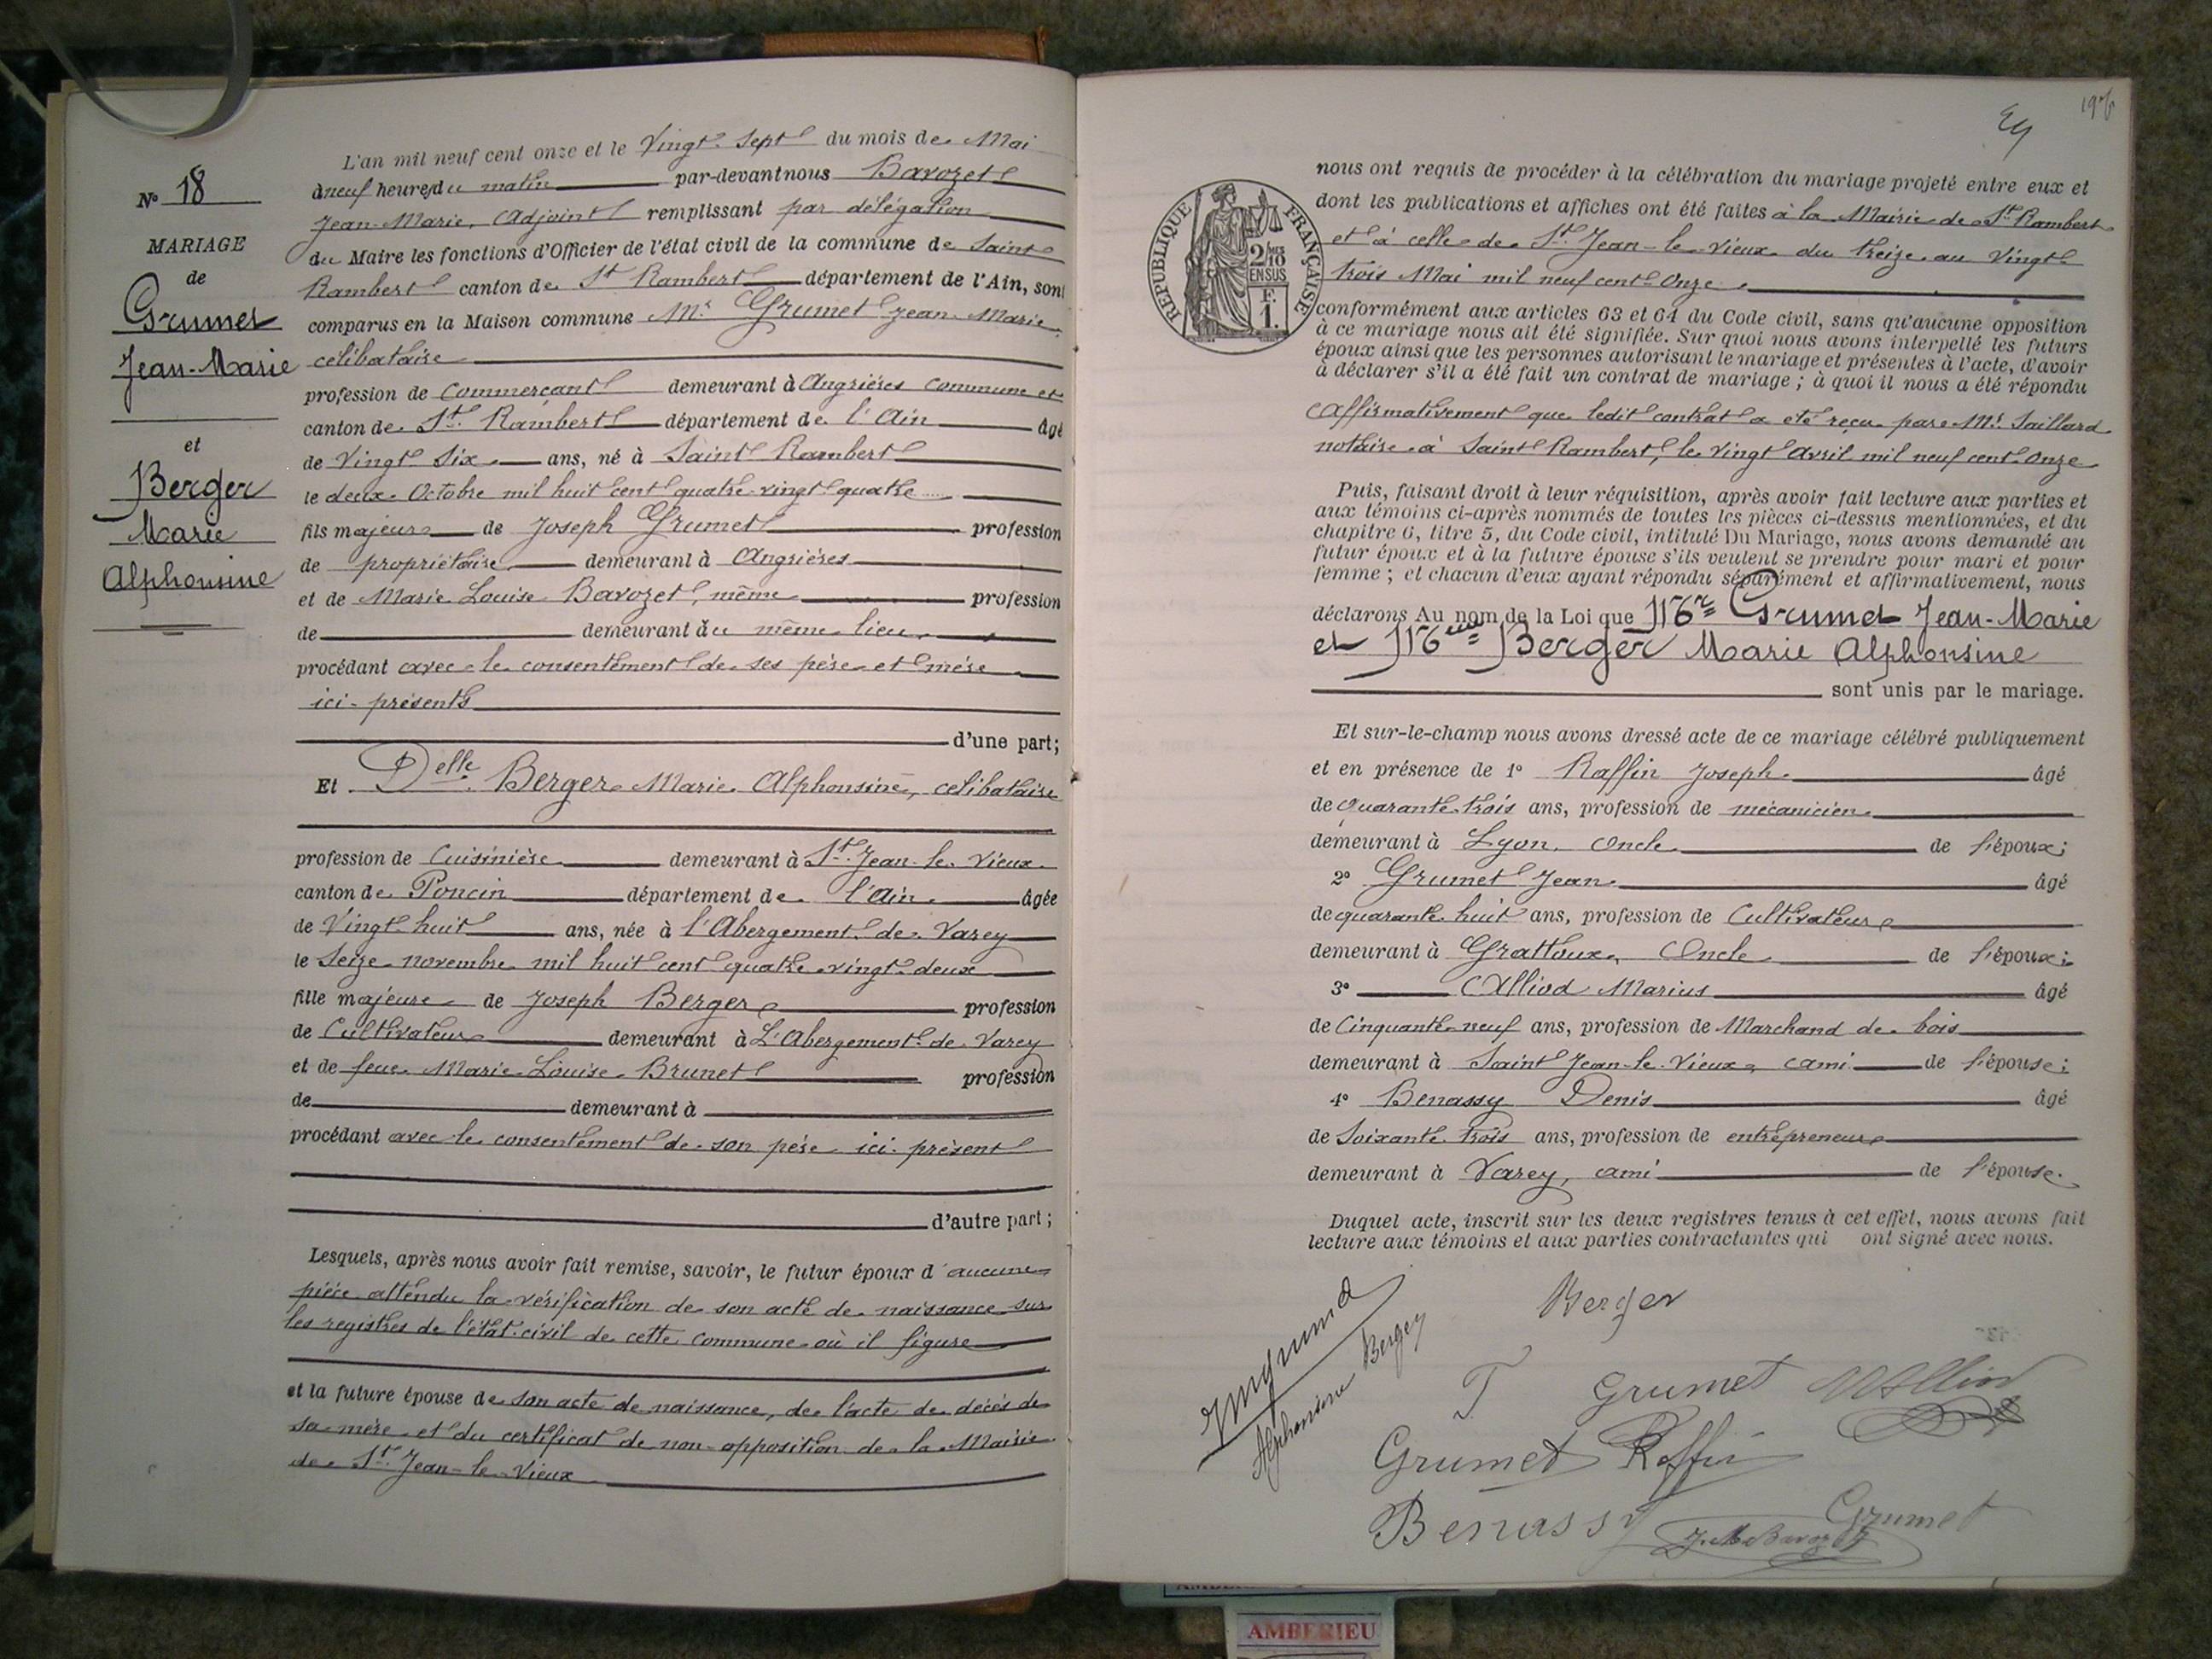 N° 18
MARIAGE
de
Grumet
Jean-Marie
et
Berger
Marie
Alphonsine
L'an mil neuf cent onze et le Vingt-Sept du mois de Mai
à neuf heures du matin par-devant nous Bavozet
Jean-Marie, Adjoint remplissant par délégation
du Maire les fonctions d'Officier de l'état civil de la commune de Saint
Rambert canton de St Rambert département de l'Ain, sont
comparus en la Maison commune Mr Grumet Jean-Marie
célibataire
profession de Commerçant demeurant à Angrières commune et
canton de St. Rambert département de l'Ain âgé
de Vingt Six ans, né à Saint Rambert
le deux Octobre mil huit cent quatre-vingt-quatre
fils majeur de Joseph Grumet profession
de propriétaire demeurant à Angrières
et de Marie Louise Bavozet, même profession
de demeurant au même lieu
procédant avec le consentement de ses père et mère
ici-présents
d'une part;
Et Delle Berger Marie Alphonsine, celibataire
profession de Cuisinière demeurant à St. Jean-le-Vieux
canton de Poncin département de l'Ain âgée
de Vingt-huit ans, née à l'Abergement-de-Varey
le Seize novembre mil huit cent quatre-vingt-deux
fille majeure de Joseph Berger profession
de Cultivateur demeurant à L'Abergement-de-Varey
et de feue Marie-Louise Brunet profession
de demeurant à
procédant avec le consentement de son père ici-présent
d'autre part;
Lesquels, après nous avoir fait remise, savoir, le futur époux d'aucune
pièce attendu la vérification de son acte de naissance sur
les registres de l'état-civil de cette commune où il figure
et la future épouse de son acte de naissance, de l'acte de décès de
sa mère et du certificat de non-opposition de la Mairie
de St. Jean-le-Vieux
RÉPUBLIQUE FRANÇAISE
2/10
EN SUS
F.
1.
nous ont requis de procéder à la célébration du mariage projeté entre eux et
dont les publications et affiches ont été faites à la Mairie de St Rambert
et à celle de St. Jean-le-Vieux du treize au vingt
trois Mai mil neuf cent-Onze
conformément aux articles 63 et 64 du Code civil, sans qu'aucune opposition
à ce mariage nous ait été signifiée. Sur quoi nous avons interpellé les futurs
époux ainsi que les personnes autorisant le mariage et présentes à l'acte, d'avoir
à déclarer s'il a été fait un contrat de mariage; à quoi il nous a été répondu
Affirmativement que ledit contrat a été reçu par Me Saillard
notaire à Saint Rambert, le vingt Avril mil neuf cent-Onze
Puis, faisant droit à leur réquisition, après avoir fait lecture aux parties et
aux témoins ci-après nommés de toutes les pièces ci-dessus mentionnées, et du
chapitre 6, titre 5, du Code civil, intitulé Du Mariage, nous avons demandé au
futur époux et à la future épouse s'ils veulent se prendre pour mari et pour
femme; et chacun d'eux ayant répondu séparément et affirmativement, nous
déclarons Au nom de la Loi que Mr Grumet Jean-Marie
et Melle Berger Marie Alphonsine
sont unis par le mariage.
Et sur-le-champ nous avons dressé acte de ce mariage célébré publiquement
et en présence de 1° Raffin Joseph âgé
de Quarante-trois ans, profession de mécanicien
demeurant à Lyon, Oncle de l'époux;
2° Grumet Jean âgé
de quarante-huit ans, profession de Cultivateur
demeurant à Grattoux, Oncle de l'époux;
3° Alliod Marius âgé
de Cinquante-neuf ans, profession de Marchand de bois
demeurant à Saint Jean-le-Vieux, ami de l'épouse;
4° Benassy Denis âgé
de Soixante-trois ans, profession de entrepreneur
demeurant à Varey, ami de l'épouse.
Duquel acte, inscrit sur les deux registres tenus à cet effet, nous avons fait
lecture aux témoins et aux parties contractantes qui ont signé avec nous.
Berger
Alphonsine Berger
Grumet MAlliod
Grumet Raffin
Benassy J.M. Bavozet Grumet
AMBERIEU